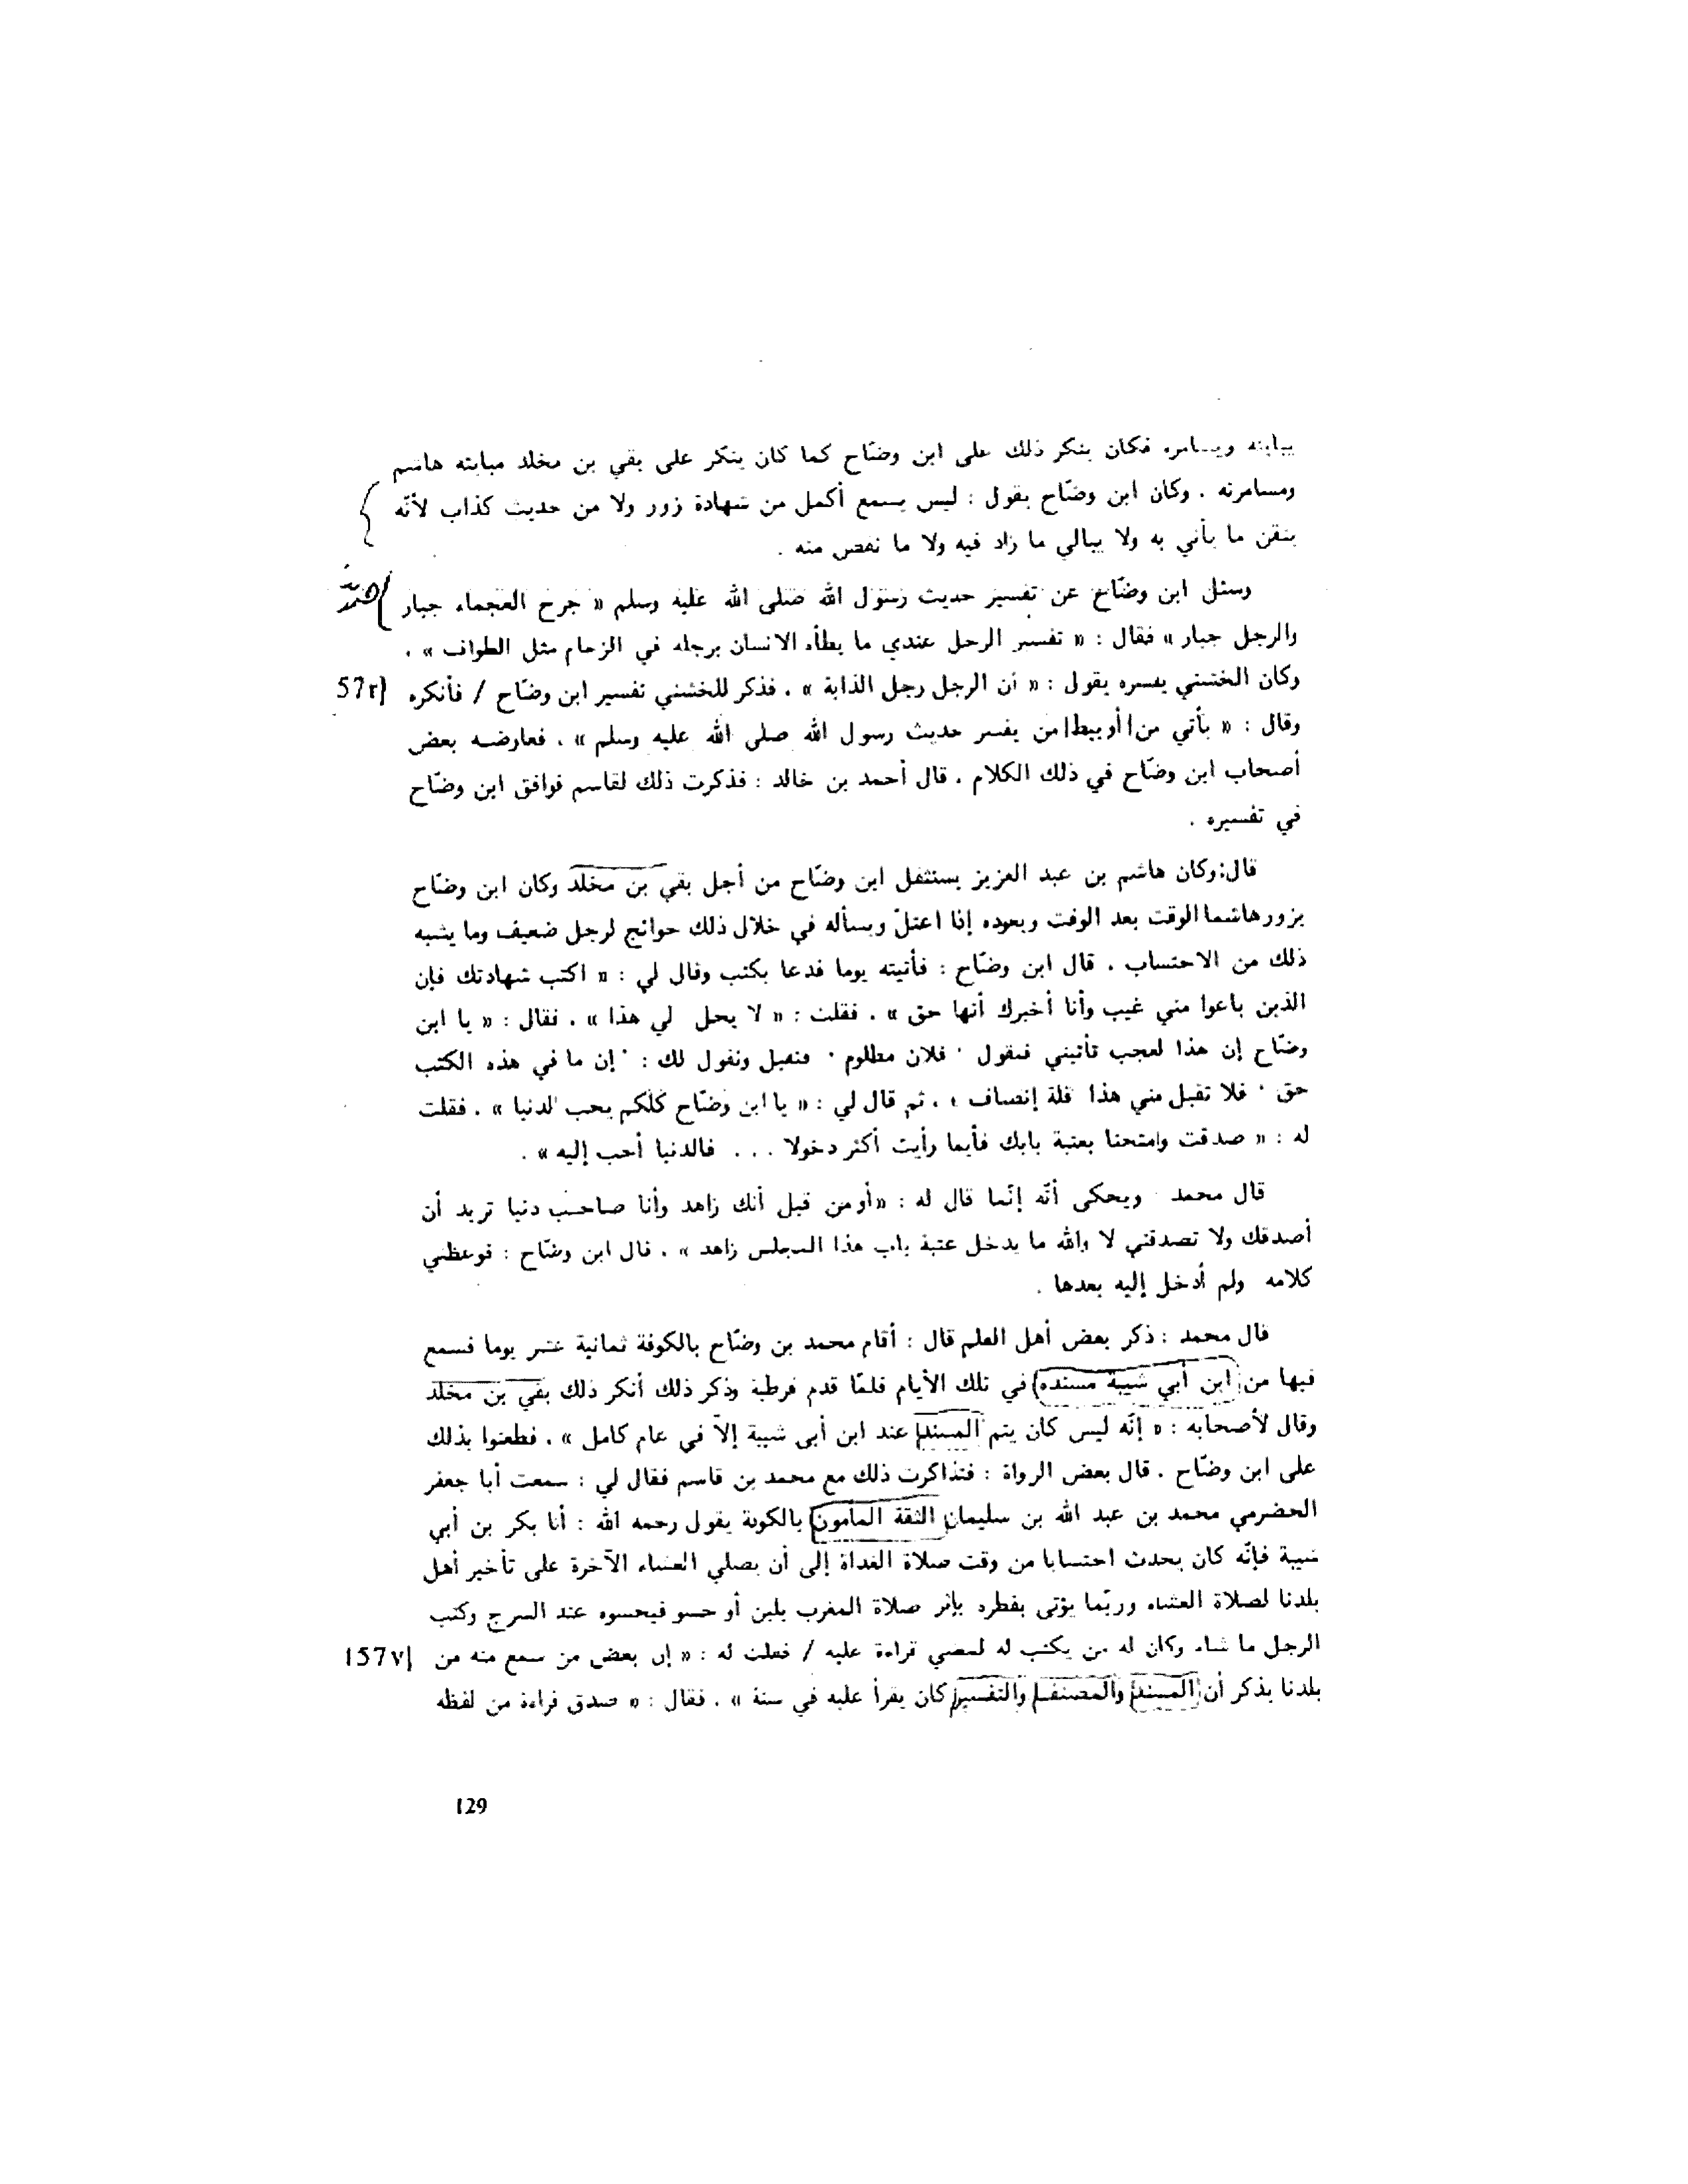 يبايته ويسامره فكان ينكر ذلك على ابن وضّاح كما كان ينكر على بقي بن مخلد مبايته هاشم
ومسامرته . وكان ابن وضّاح يقول : ليس يسمع أكمل من شهادة زور ولا من حديث كذاب لأنّه
يتقن ما يأتي به ولا يبالي ما زاد فيه ولا ما نقص منه .
وسئل ابن وضّاح عن تفسير حديث رسول الله صلى الله عليه وسلم « جرح العجماء جبار
والرجل جبار » فقال : « تفسير الرجل عندي ما يطأه الانسان برجله في الزحام مثل الطواف » .
وكان الخشني يفسره يقول : « أن الرجل رجل الدابة » . فذكر للخشني تفسير ابن وضّاح / فأنكره 57r]
وقال : « يأتي من أوبيط من يفسر حديث رسول الله صلى الله عليه وسلم » . فعارضه بعض
أصحاب ابن وضّاح في ذلك الكلام . قال أحمد بن خالد : فذكرت ذلك لقاسم فوافق ابن وضّاح
في تفسيره .
قال : وكان هاشم بن عبد العزيز يستثقل ابن وضّاح من أجل بقي بن مخلد وكان ابن وضّاح
يزور هاشما الوقت بعد الوقت ويعوده إذا اعتلّ ويسأله في خلال ذلك حوائج لرجل ضعيف وما يشبه
ذلك من الاحتساب . قال ابن وضّاح : فأتيته يوما فدعا بكتب وقال لي : « اكتب شهادتك فإن
الذين باعوا مني غيب وأنا أخبرك أنها حق » . فقلت : « لا يحل لي هذا » . فقال : « يا ابن
وضّاح إن هذا لعجب تأتيني فتقول ' فلان مظلوم ' فنقبل ونقول لك : ' إن ما في هذه الكتب
حق ' فلا تقبل مني هذا قلة إنصاف » . ثم قال لي : « يا ابن وضّاح كلّكم يحب الدنيا » . فقلت
له : « صدقت وامتحنا بعتبة بابك فأيما رأيت أكثر دخولا ... فالدنيا أحب إليه » .
قال محمد ويحكى أنّه إنّما قال له : « أومن قبل أنك زاهد وأنا صاحب دنيا تريد أن
أصدقك ولا تصدقني لا والله ما يدخل عتبة باب هذا المجلس زاهد » . قال ابن وضّاح : فوعظني
كلامه ولم أدخل إليه بعدها .
قال محمد : ذكر بعض أهل العلم قال : أقام محمد بن وضّاح بالكوفة ثمانية عشر يوما فسمع
فيها من ابن أبي شيبة مسنده في تلك الأيام فلمّا قدم قرطبة وذكر ذلك أنكر ذلك بقي بن مخلد
وقال لأصحابه : « إنّه ليس كان يتم المسند عند ابن أبي شيبة إلاّ في عام كامل » . فطعنوا بذلك
على ابن وضّاح . قال بعض الرواة : فتذاكرت ذلك مع محمد بن قاسم فقال لي : سمعت أبا جعفر
الحضرمي محمد بن عبد الله بن سليمان الثقة المأمون بالكوفة يقول رحمه الله : أنا بكر بن أبي
شيبة فإنّه كان يحدث احتسابا من وقت صلاة الغداة إلى أن يصلي العشاء الآخرة على تأخير أهل
بلدنا لصلاة العشاء وربّما يؤتى بفطره بإثر صلاة المغرب بلبن أو حسو فيحسوه عند السرج وكتب
الرجل ما شاء وكان له من يكتب له لمضي قراءة عليه / فقلت له : « إن بعض من سمع منه من 157v]
بلدنا يذكر أن المسند والمصنف والتفسير كان يقرأ عليه في سنة » . فقال : « صدق قراءة من لفظه
129